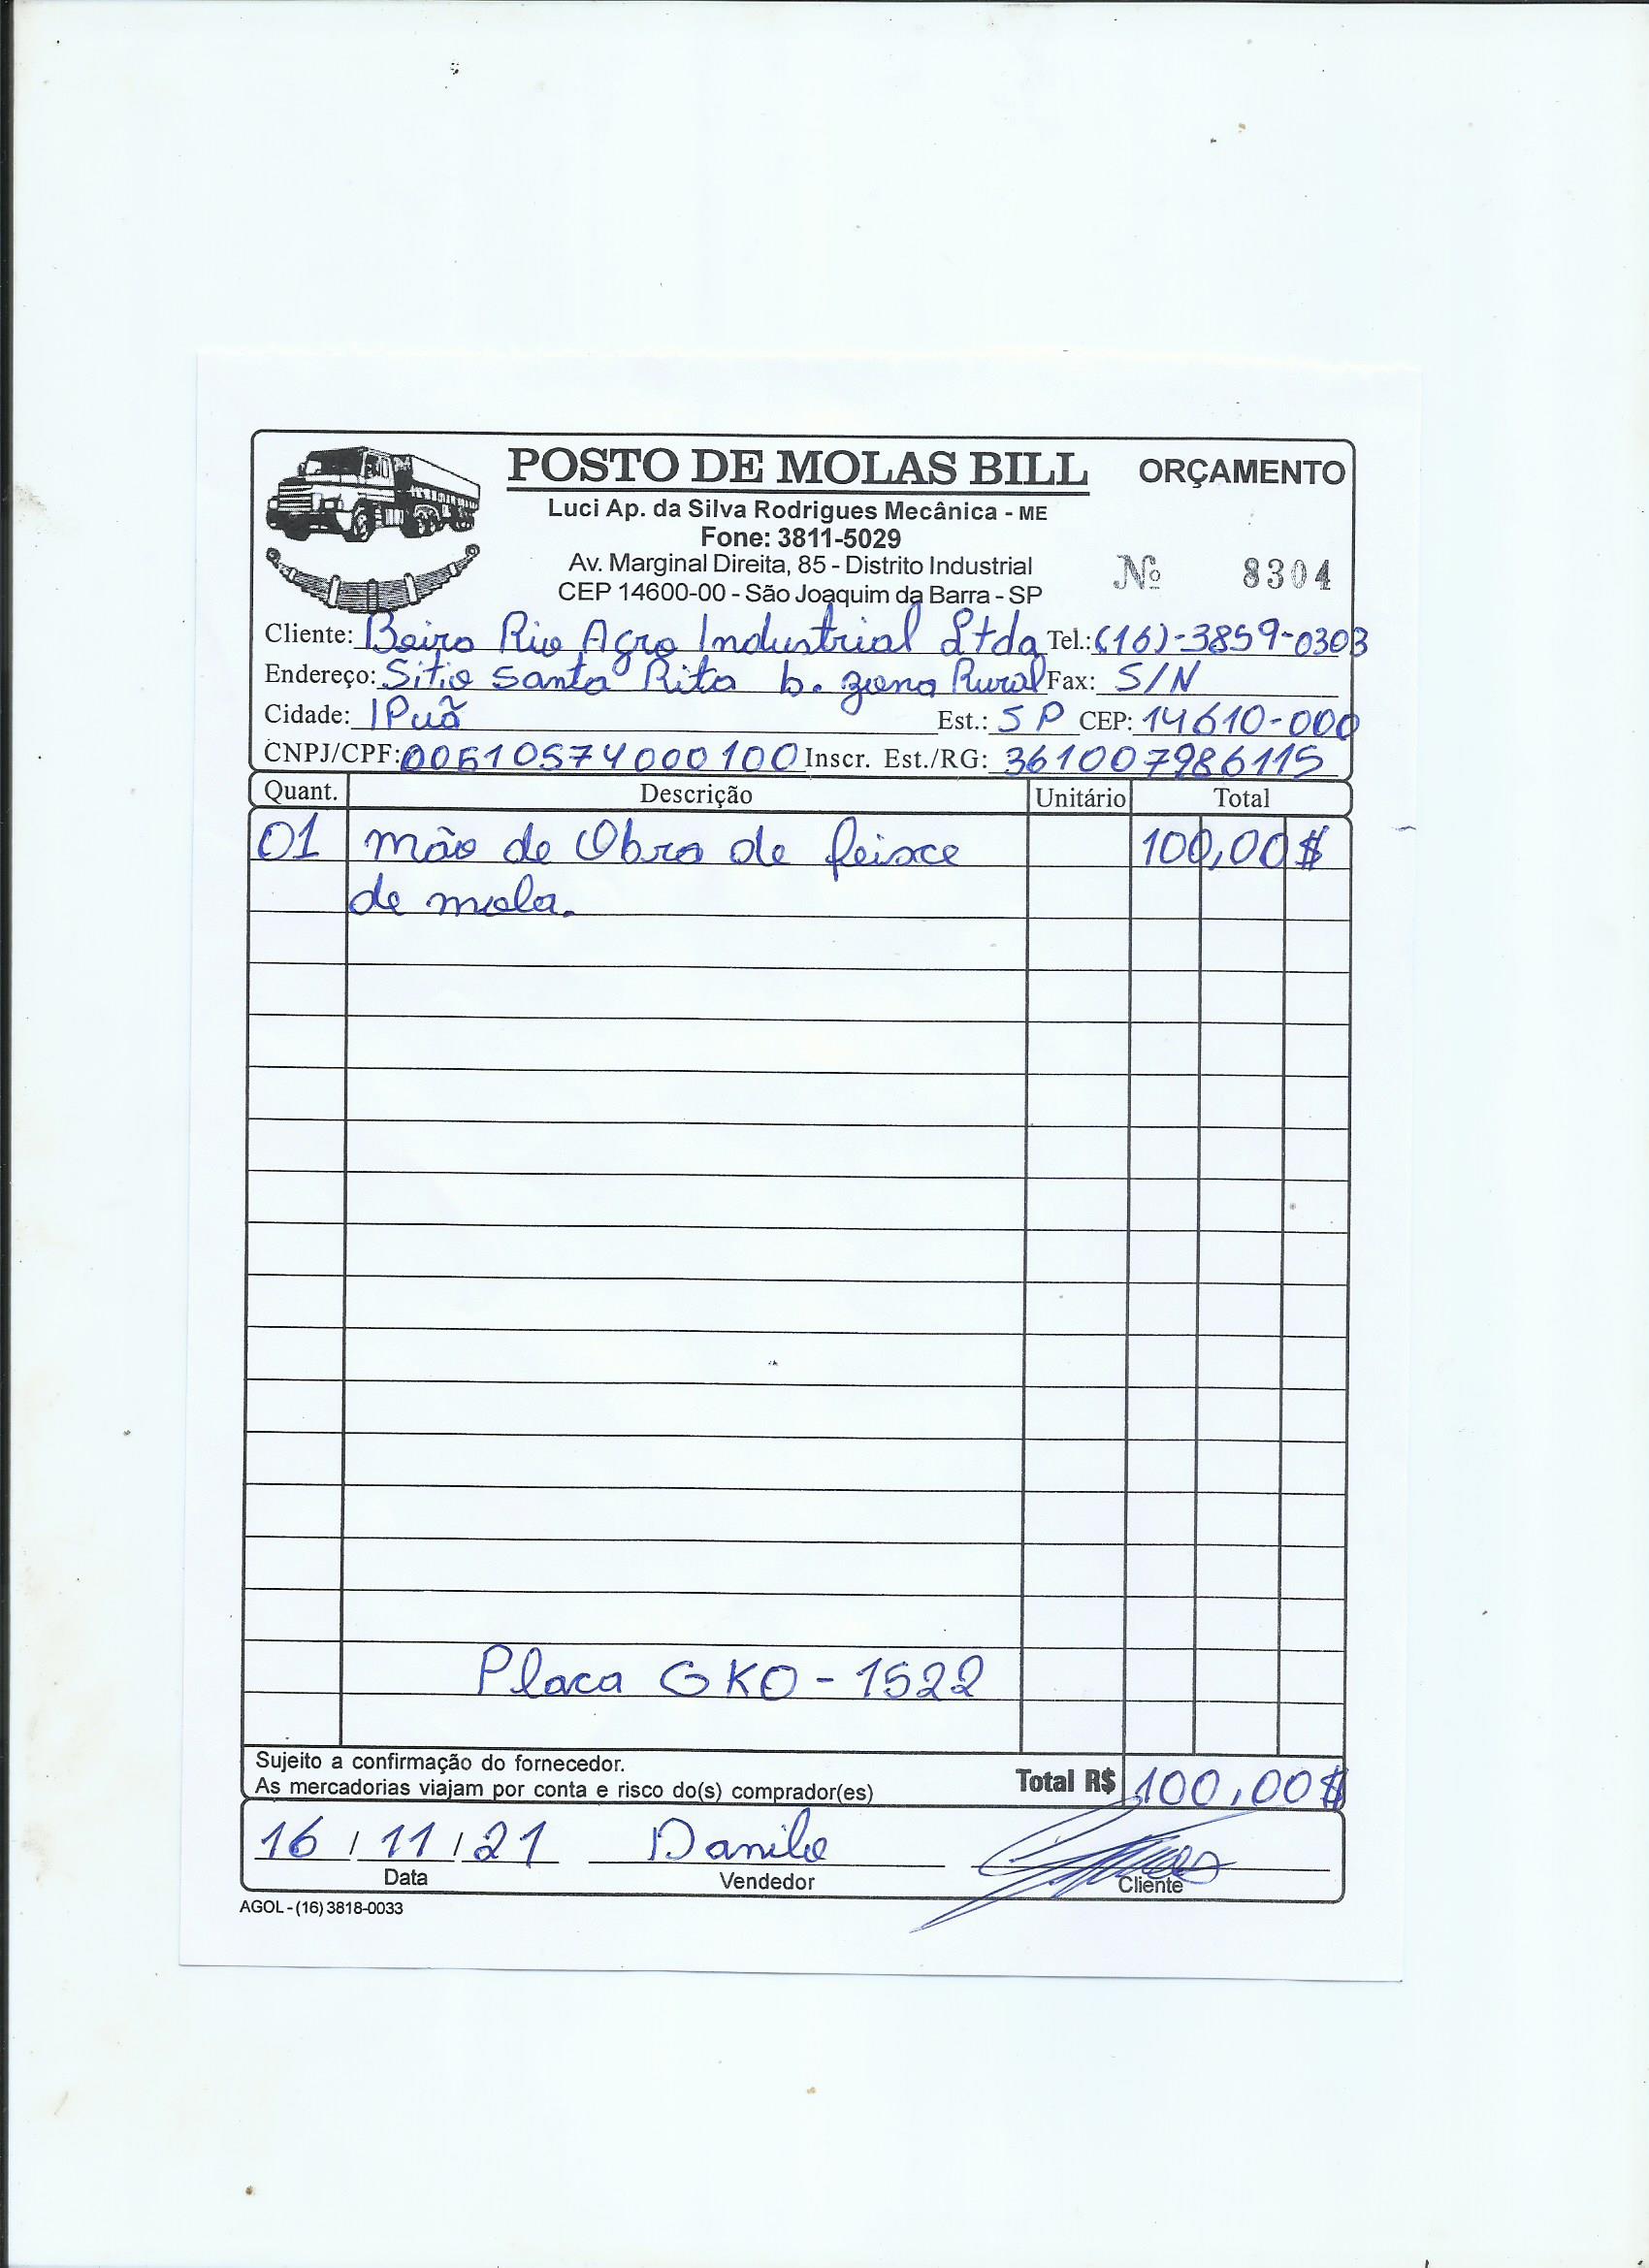 POSTO DE MOLAS BILL ORÇAMENTO
Luci Ap. da Silva Rodrigues Mecânica - ME
Fone: 3811-5029
Av. Marginal Direita, 85 - Distrito Industrial
CEP 14600-00 - São Joaquim da Barra - SP
Nº 8304
Cliente: Beira Rio Agro Industrial Ltda Tel.: (16)-3859-0303
Endereço: Sitio Santa Rita b. zona Rural Fax: S/N
Cidade: IPuã Est.: SP CEP: 14610-000
CNPJ/CPF: 00610574000100 Inscr. Est./RG: 361007986115
Quant. Descrição Unitário Total
01 mão de Obra de feixce 100,00$
de mola.
Placa GKO-1522
Sujeito a confirmação do fornecedor.
As mercadorias viajam por conta e risco do(s) comprador(es) Total R$ 100,00$
16/11/21 Danilo
Data Vendedor Cliente
AGOL - (16) 3818-0033